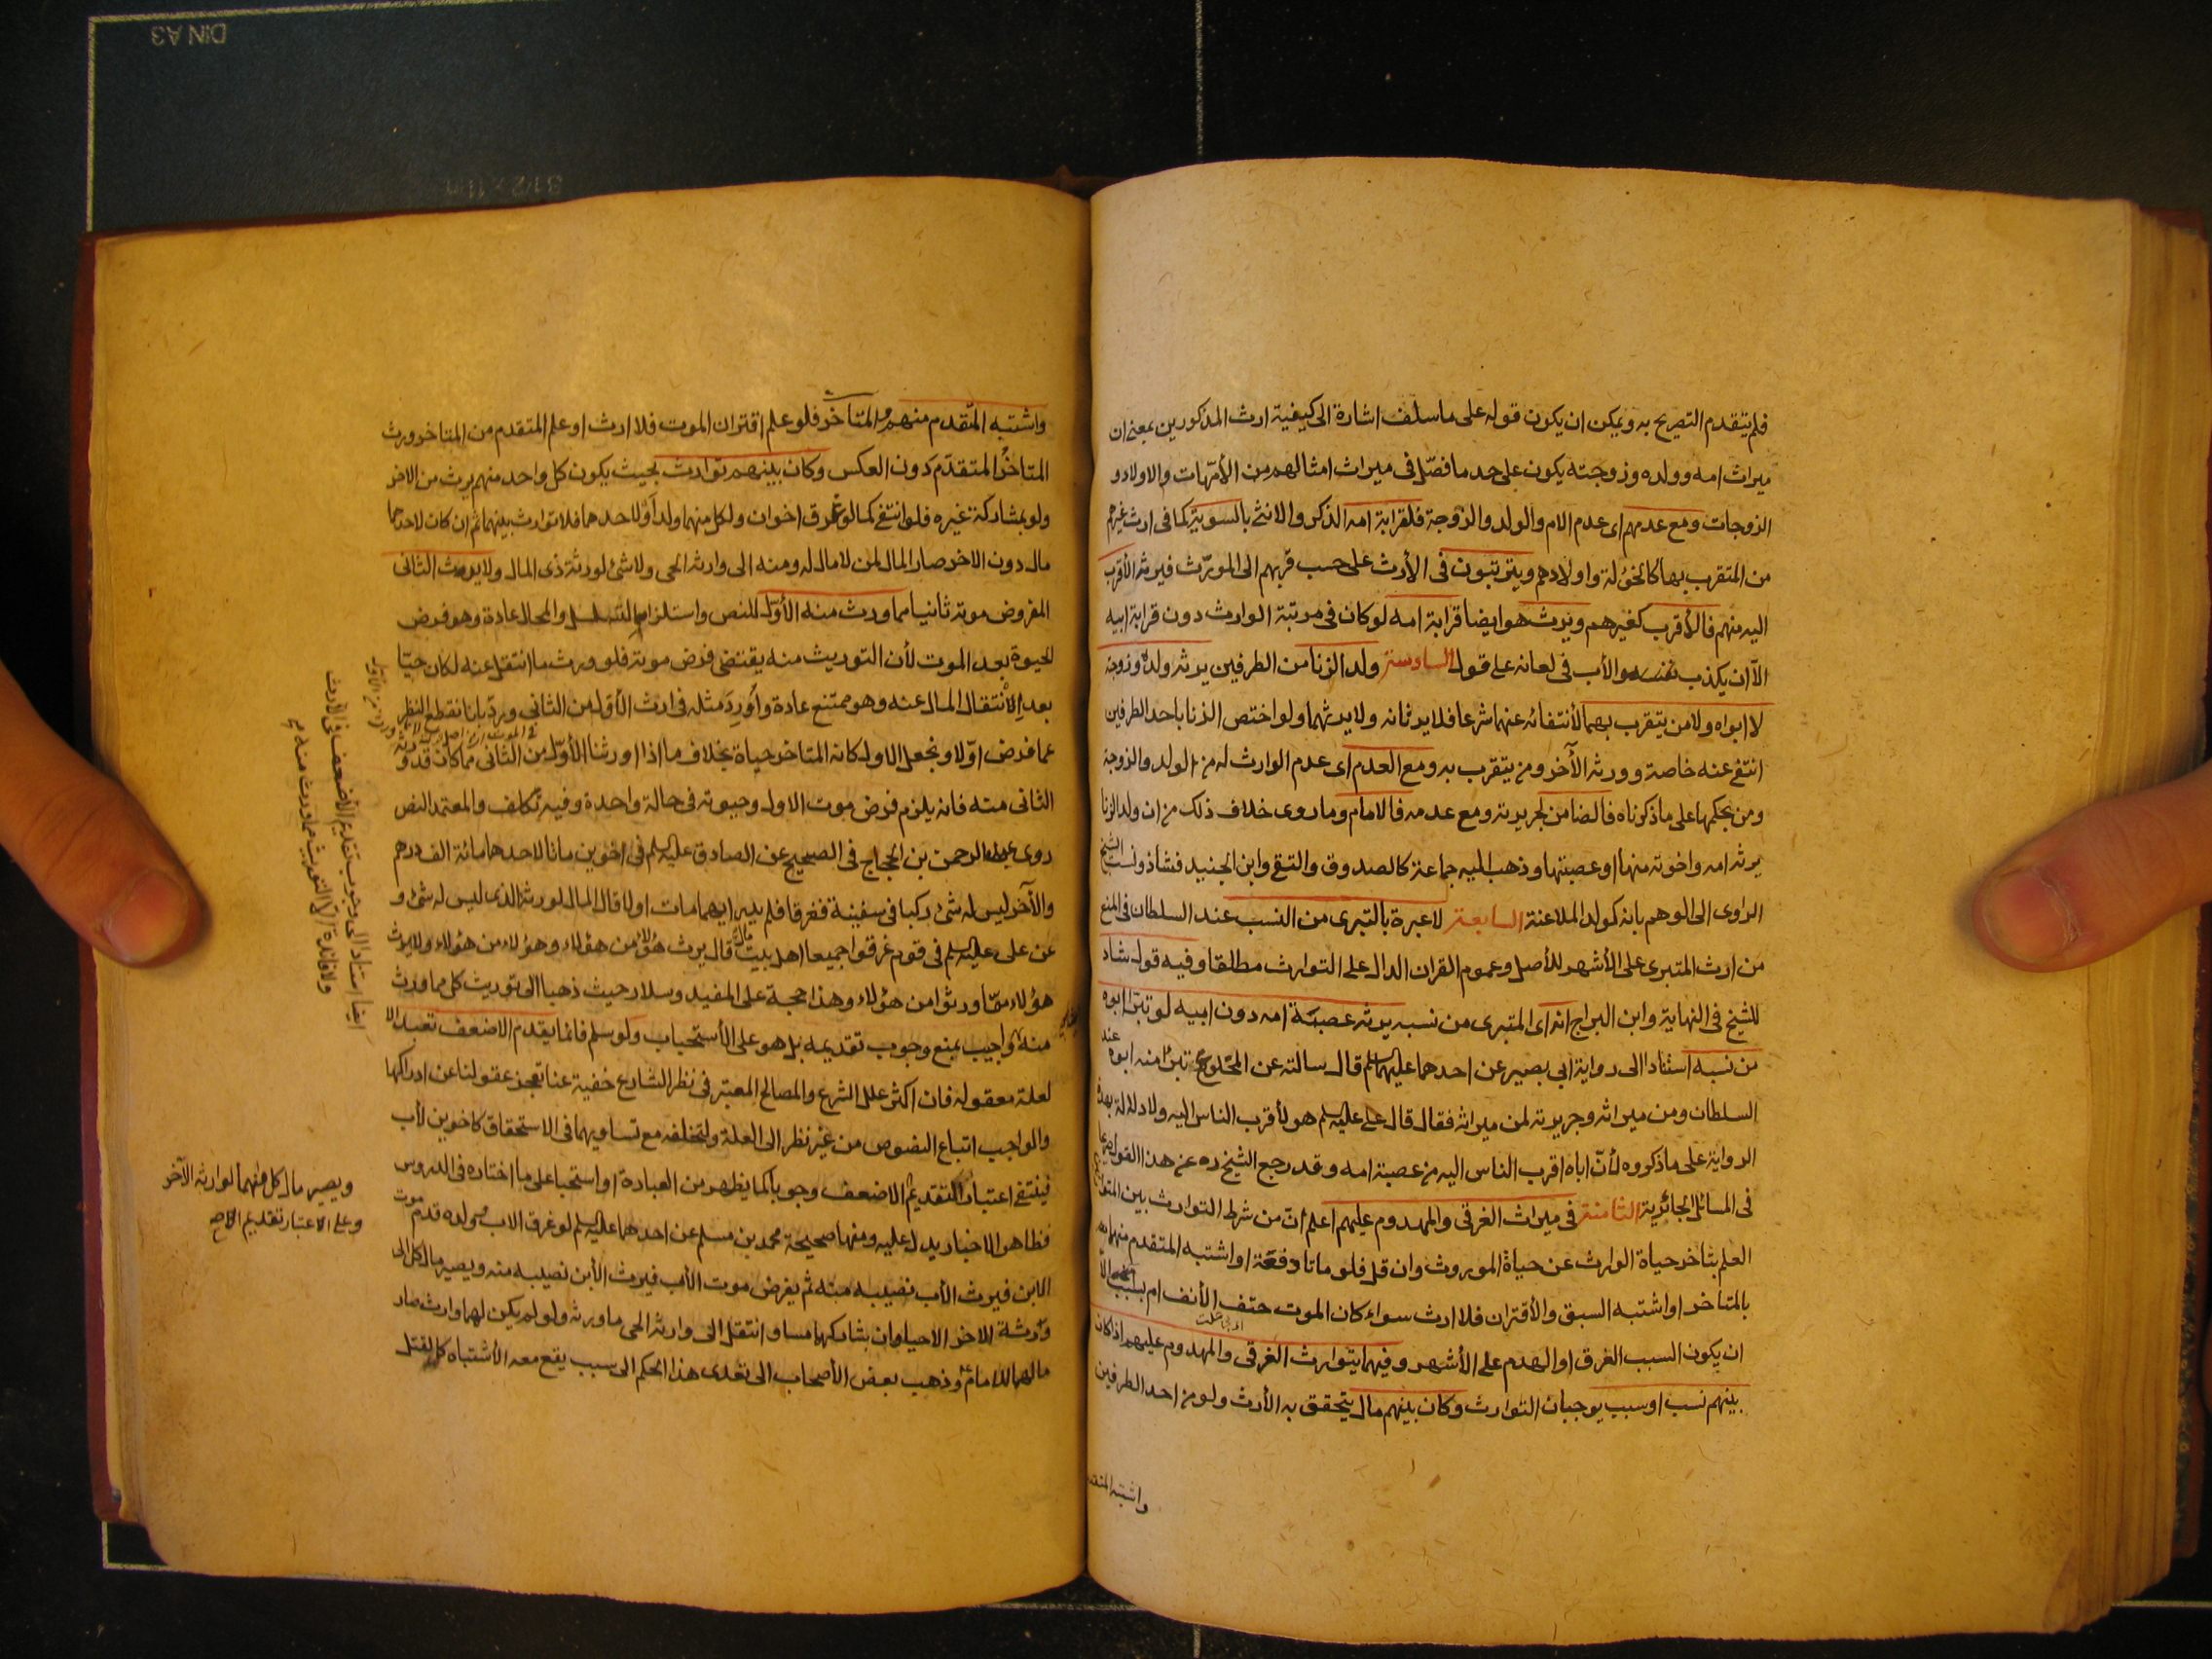 فلم يتقدم التصريح به ويمكن ان يكون قوله على ما سلف اشارة الى كيفية ارث المذكورين بمعنى ان
ميراث امه وولده وزوجته يكون على حد ما فصّل فى ميراث امثالهم من الأمّهات والاولاد و
الزوجات ومع عدمهم اى عدم الام والولد والزوجة فلقرابة امه الذكر والانثى بالسوية كما فى ارث غيرهم
من المتقرب بها كالخؤلة واولادهم ويترتبون فى الأرث على حسب قربهم الى المورّث فيرثه الأقرب
اليه منهم فالأقرب كغيرهم ويرث هو ايضا قرابة امه لو كان فى مرتبة الوارث دون قرابة ابيه
الّا ان يكذب نفسه والأب فى لعانه على قول السادسة ولد الزنا من الطرفين يرثه ولده وزوجه
لا ابواه ولا من يتقرب بهما لأنتفائه عنهما شرعا فلا يرثانه ولا يرثهما ولو اختص الزنا باحد الطرفين
انتفى عنه خاصة وورثه الآخر ومن يتقرب به ومع العدم اى عدم الوارث له من الولد والزوجة
ومن بحكمها على ما ذكرناه فالضامن لجريرته ومع عدمه فالامام وما روى خلاف ذلك من ان ولد الزنا
يرثه امه واخوته منها او عصبتها وذهب اليه جماعة كالصدوق والتقى وابن الجنيد فشاذ ونسب الشيخ
الراوى الى الوهم بانه كولد الملاعنة السابعة لا عبرة بالتبرى من النسب عند السلطان فى المنع
من ارث المتبرى على الأشهر للأصل وعموم القران الدال على التوارث مطلقا وفيه قول شاذ
للشيخ فى النهاية وابن البراج انه اى المتبرى من نسبه يرثه عصبة امه دون ابيه لو تبرّأ ابوه
من نسبه استنادا الى رواية ابى بصير عن احدهما عليهما السلم قال سالته عن المخلوع تبرّأ منه ابوه عند
السلطان ومن ميراثه وجريرته لمن ميراثه فقال قال على عليه السلم هو لأقرب الناس اليه ولا دلالة لهذه
الرواية على ما ذكروه لأنّ اباه اقرب الناس اليه من عصبة امه وقد رجع الشيخ ره عن هذا القول صريحا
فى المسائل الجائرية الثامنة فى ميراث الغرقى والمهدوم عليهم اعلم انّ من شرط التوارث بين المتوارثين
العلم بتاخر حياة الوارث عن حياة الموروث وان قل فلو ماتا دفعة او اشتبه المتقدم منهما
بالمتاخر او اشتبه السبق والأقتران فلا ارث سواء كان الموت حتف الأنف ام بسبب الّا
ان يكون السبب الغرق او الهدم على الأشهر وفيهما يتوارث الغرقى والمهدوم عليهم اذا كان
بينهم نسب او سبب يوجبان التوارث وكان بينهم مال يتحقق به الأرث ولو من احد الطرفين
واشتبه المتقدم
واشتبه المتقدم منهم والمتاخر فلو علم اقتران الموت فلا ارث او علم المتقدم من المتاخر ورث
المتاخرُ المتقدّمَ دون العكس وكان بينهم توارث بحيث يكون كل واحد منهم يرث من الاخر
ولو بمشاركة غيره فلو انتفى كما لو غرق اخوان ولكل منهما ولد او لاحدهما فلا توارث بينهما ثم ان كان لاحدهما
مال دون الاخر صار المال لمن لا مال له ومنه الى وارثه الحى ولا شئ لورثة ذى المال ولا يرث الثانى
المفروض موته ثانيا مما ورث منه الأوّل للنص واستلزام التسلسل والمحال عادة وهو فرض
الحيوة بعد الموت لأن التوريث منه يقتضى فرض موته فلو ورث ما انتقل عنه لكان حيّا
بعد انتقال المال عنه وهو ممتنع عادة واُورِدَ مثله فى ارث الأول من الثانى وردّ بانا نقطع النظر
عما فرض اوّلا ونجعل الاول كانه المتاخر حياة بخلاف ما اذا اورثنا الأوّل من الثانى مما كان قد ورثه
الثانى منه فانه يلزم فرض موت الاول وحيوته فى حالة واحدة وفيه تكلف والمعتمد النص
روى عبد الرحمن بن الحجاج فى الصحيح عن الصادق عليه السلم فى اخوين ماتا لاحدهما مائة الف درهم
والآخر ليس له شئ ركبا فى سفينة فغرقا فلم يدر ايهما مات اولا قال المال لورثة الذى ليس له شئ و
عن على عليه السلم فى قوم غرقوا جميعا اهل بيت قال يرث هؤلاء من هؤلاء وهؤلاء من هؤلاء ولا يرث
هؤلاء مما ورثوا من هؤلاء وهذا حجة على المفيد وسلار حيث ذهبا الى توريث كل مما ورث
منه واجيب بمنع وجوب تقديمه بل هو على الأستحباب ولو سلم فانما يقدم الاضعف تعبدا لا
لعلة معقوله فان اكثر علل الشرع والمصالح المعتبرة فى نظر الشارع خفية عنا تعجز عقولنا عن ادراكها
والواجب اتباع النصوص من غير نظر الى العلة ولتخلفه مع تساويهما فى الاستحقاق كاخوين لأب
فينتفى اعتبار التقديم الاضعف وجوبا كما يظهر من العبارة او استحبابا على ما اختاره فى الدروس
فظاهر الاخبار يدل عليه ومنها صحيحة محمد بن مسلم عن احدهما عليهما السلم لو غرق الاب وولده قدم موت
الابن فيرث الأب نصيبه منه ثم يفرض موت الأب فيرث الأبن نصيبه منه ويصير مال كل الى
ورثة الاخر الاحياء وان شاركهما مساو انتقل الى وارثه الحى ما ورثه ولو لم يكن لهما وارث صار
مالهما للامام وذهب بعض الأصحاب الى تعدى هذا الحكم الى سبب يقع معه الأشتباه كالقتل
ولا فائدة الا التوريث مما ورث منه
ويصير مال كل منهما لوارثه الآخر
وعلى الاعتبار تقديم